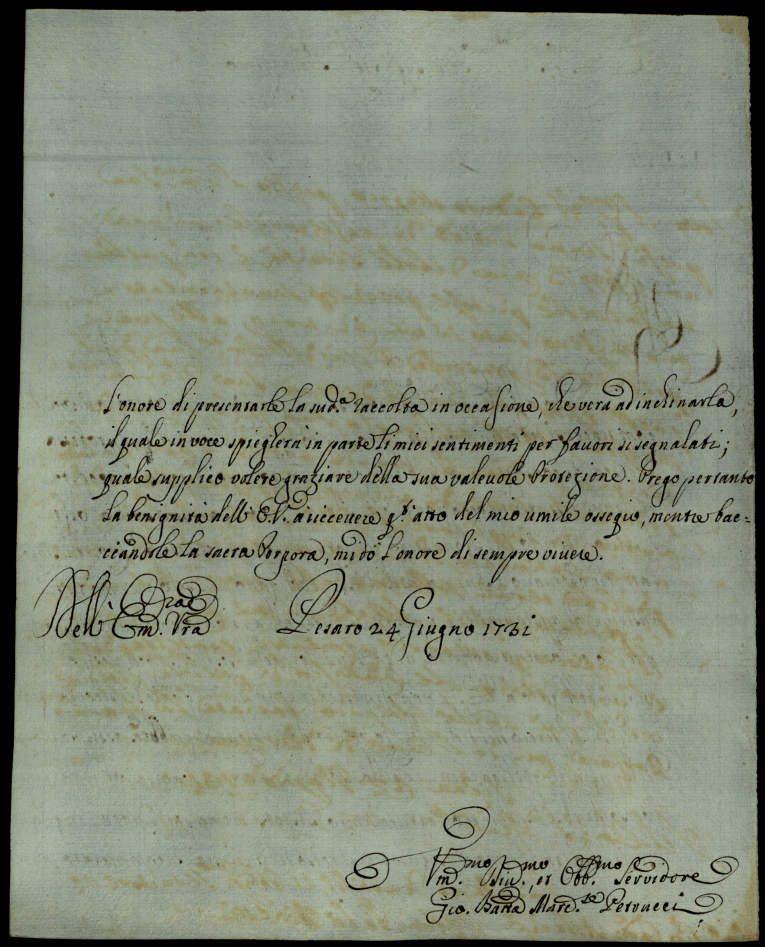 l'onore di presentarle la sud.ª raccolta in occasione, che verà ad inchinarla,
il quale in voce spiegherà in parte li miei sentimenti per favori si segnalati;
quale supplico volere graziare della sua valevole Protezione. Prego pertanto
la benignità dell' E.V. a riceuere q.º atto del mio umile ossequio, mentre bac=
ciandole la sacra Porpora, mi dò l'onore di sempre vivere.
Dell' Em. Vrã Pesaro 24 Giugno 1731
Vm.mo Div.mo, et Obb.mo Servidore
Gio. Batta March.se Petrucci